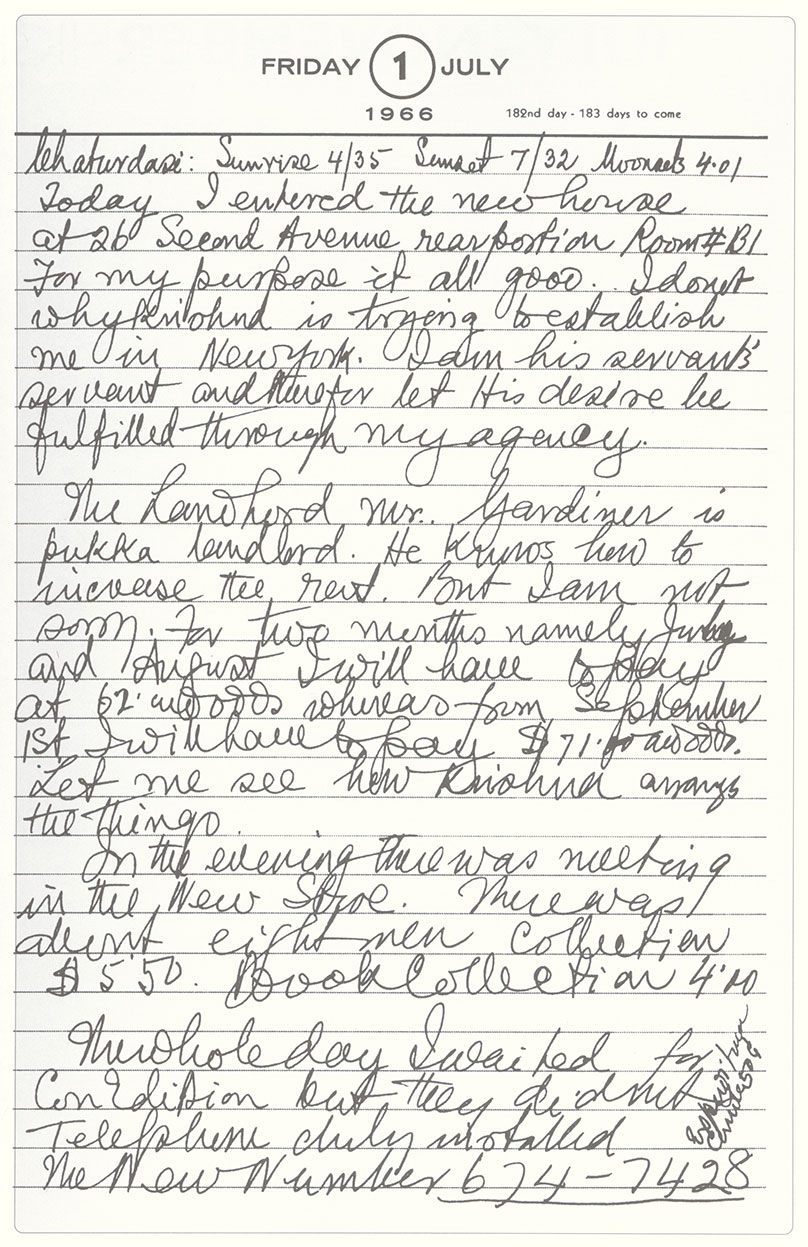 FRIDAY 1 JULY
1966 182nd day - 183 days to come
Chaturdasi: Sunrise 4/35 Sunset 7/32 Moonsets 4.01
Today I entered the new house
at 26 Second Avenue rear portion Room # B1
For my purpose it all good. I do not
why Krishna is trying to establish
me in New York. I am his servant's
servant and therefor let His desire be
fulfilled through my agency.
The Landlord Mr. Gardiner is
pukka landlord. He knows how to
increase the rent. But I am not
sorry. For two months namely July
and August I will have to pay
at 62. whereas from September
1st I will have to pay $ 71.
Let me see how Krishna arranges
the things.
In the evening there was meeting
in the New Store. There was
about eight men Collection
$ 5.50. Book Collection 4.00
The whole day I waited for
Con Edition but they did not
Telephone duly installed
The New Number 674-7428